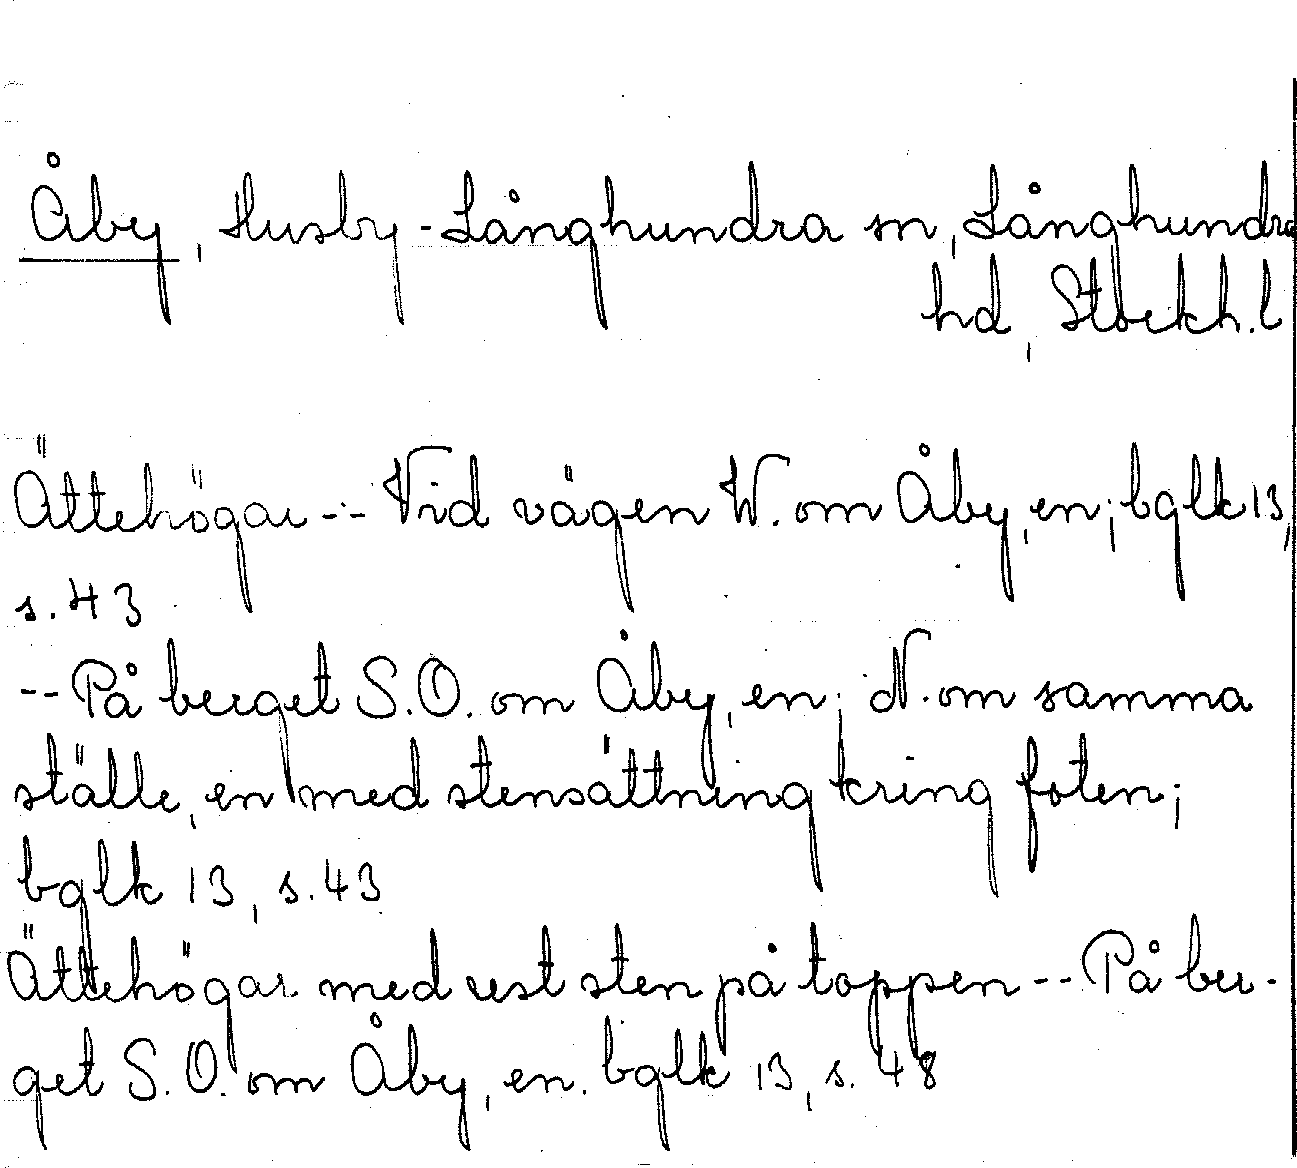 Åby, Husby-Långhundra sn, Långhundra
hd, Stockh. l
Ättehögar -- Vid vägen W. om Åby, en; bglk 13,
s. 43
-- På berget S.O. om Åby, en; N. om samma
ställe, en med stensättning kring foten;
bglk 13, s. 43
Ättehögar med rest sten på toppen -- På ber-
get S.O. om Åby, en. bglk 13, s. 48